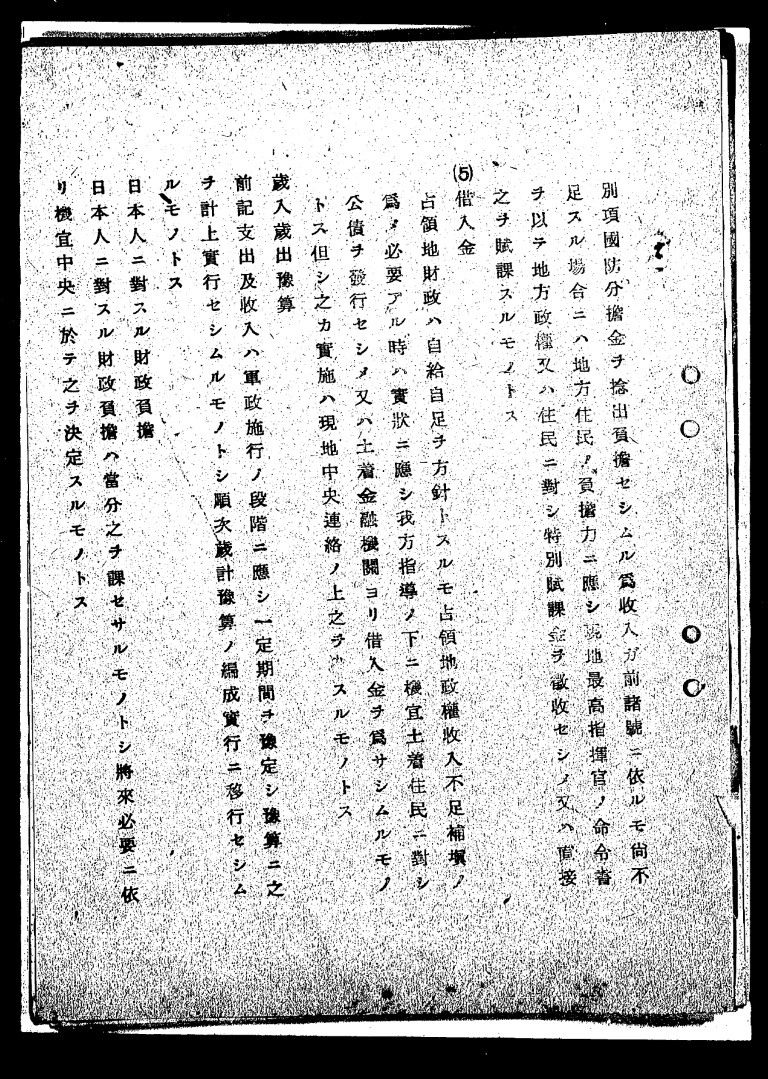 別項國防分擔金ヲ捻出負擔セシムル爲收入ガ前諸號ニ依ルモ尙不
足スル場合ニハ地方住民ノ負擔力ニ應シ現地最高指揮官ノ命令書
ヲ以テ地方政權又ハ住民ニ對シ特別賦課金ヲ徵收セシメ又ハ直接
之ヲ賦課スルモノトス
(5)借入金
占領地財政ハ自給自足ヲ方針トスルモ占領地政權收入不足補塡ノ
爲メ必要アル時ハ實狀ニ應シ我方指導ノ下ニ機宜土着住民ニ對シ
公債ヲ發行セシメ又ハ土着金融機關ヨリ借入金ヲ爲サシムルモノ
トス但シ之カ實施ハ現地中央連絡ノ上之ヲ スルモノトス
歲入歲出豫算
前記支出及收入ハ軍政施行ノ段階ニ應シ一定期間ヲ豫定シ豫算ニ之
ヲ計上實行セシムルモノトシ順次歲計豫算ノ編成實行ニ移行セシム
ルモノトス
日本人ニ對スル財政負擔
日本人ニ對スル財政負擔ハ當分之ヲ課セサルモノトシ將來必要ニ依
リ機宜中央ニ於テ之ヲ決定スルモノトス